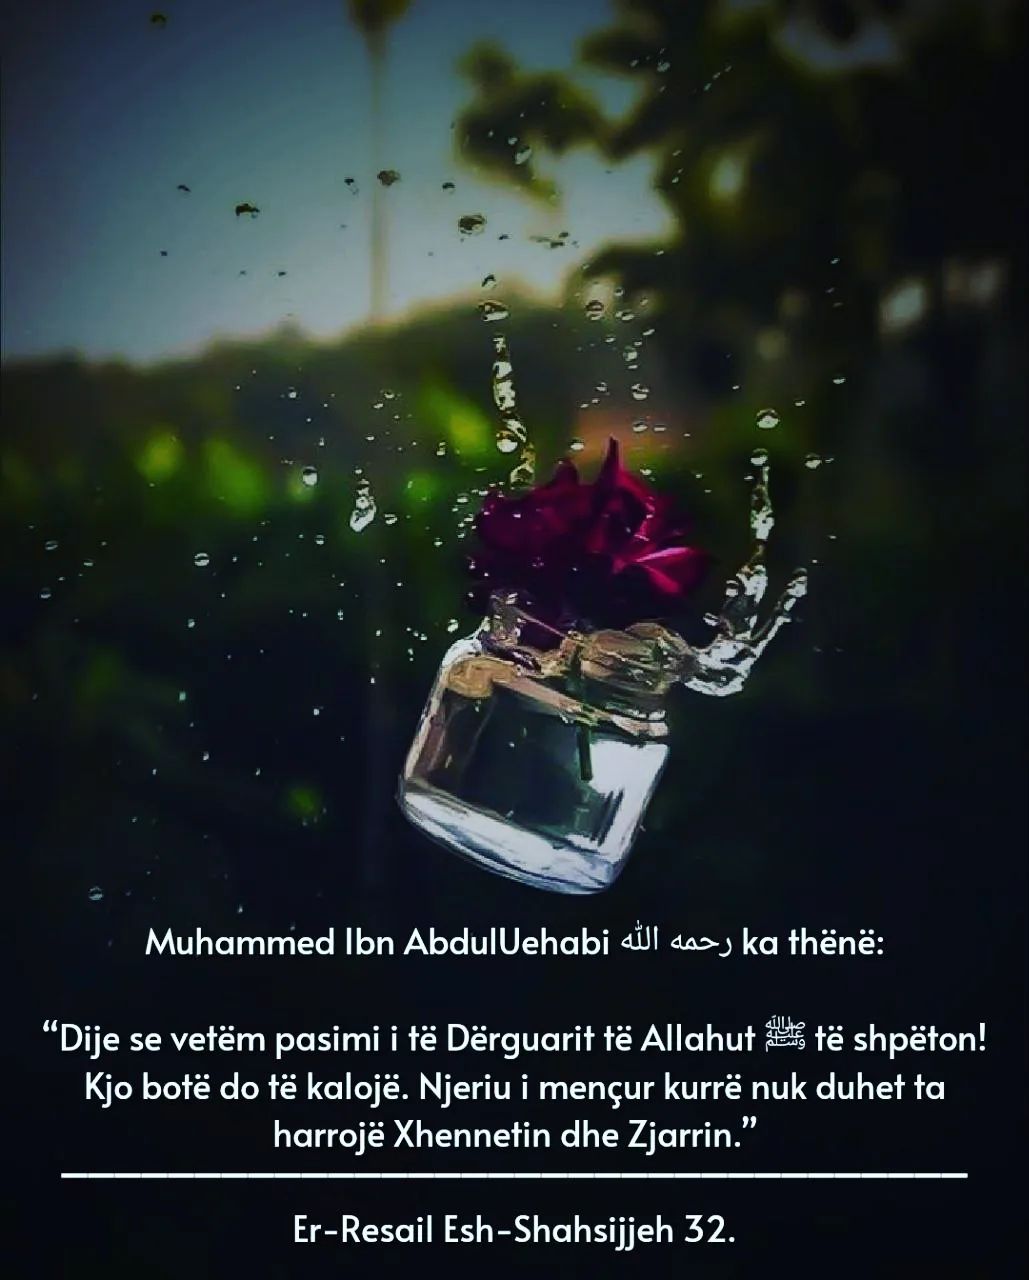 Muhammed Ibn AbdulUehabi رحمه الله ka thënë:
“Dije se vetëm pasimi i të Dërguarit të Allahut ﷺ të shpëton!
Kjo botë do të kalojë. Njeriu i mençur kurrë nuk duhet ta
harrojë Xhennetin dhe Zjarrin.”
Er-Resail Esh-Shahsijjeh 32.